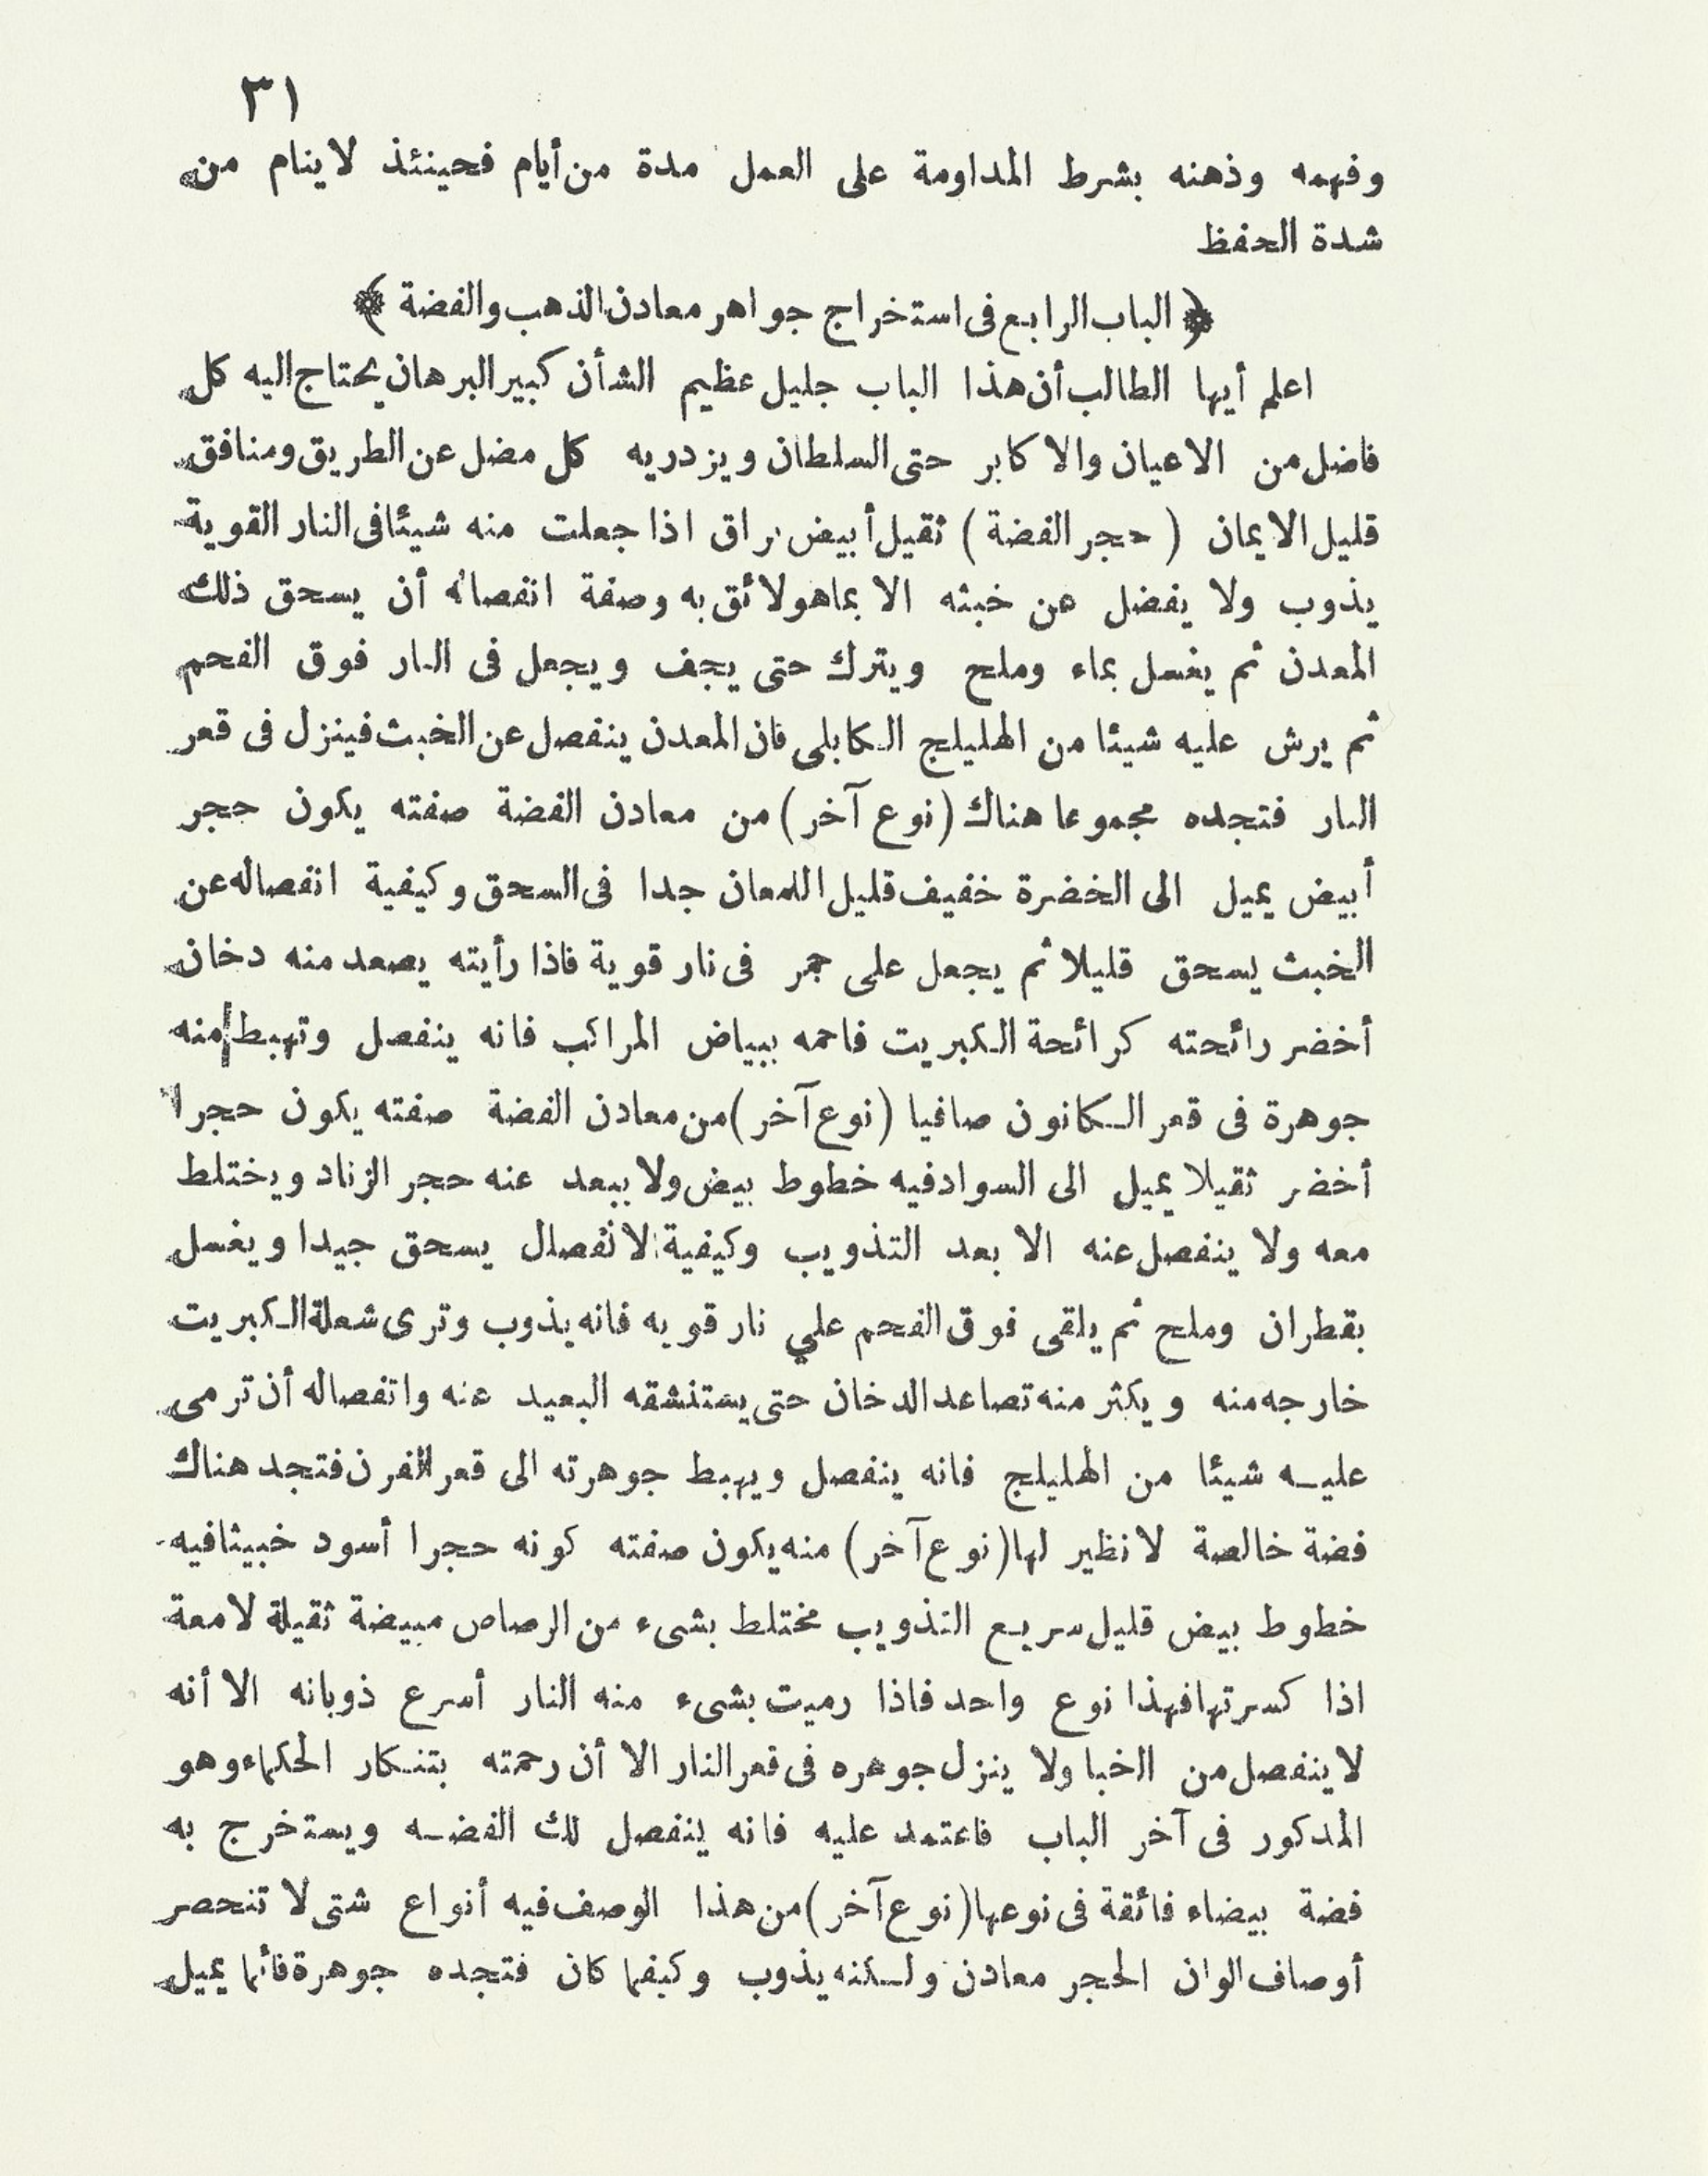 ٣١
وفهمه وذهنه بشرط المداومة على العمل مدة من أيام فحينئذ لاينام من
شدة الحفظ
﴿ الباب الرابع فى استخراج جواهر معادن الذهب والفضة ﴾
اعلم أيها الطالب أن هذا الباب جليل عظيم الشأن كبير البرهان يحتاج اليه كل
فاضل من الاعيان والاكابر حتى السلطان ويزدريه كل مضل عن الطريق ومنافق
قليل الايمان ( حجر الفضة ) ثقيل أبيض براق اذا جعلت منه شيئا فى النار القوية
يذوب ولا يفضل عن خبثه الا بماهولائق به وصفة انفصاله أن يسحق ذلك
المعدن ثم يغسل بماء وملح ويترك حتى يجف ويجعل فى النار فوق الفحم
ثم يرش عليه شيئا من الهليلج الكابلى فان المعدن ينفصل عن الخبث فينزل فى قعر
النار فتجده مجموعا هناك (نوع آخر) من معادن الفضة صفته يكون حجر
أبيض يميل الى الخضرة خفيف قليل اللمعان جدا فى السحق وكيفية انفصاله عن
الخبث يسحق قليلا ثم يجعل على جمر فى نار قوية فاذا رأيته يصعد منه دخان
أخضر رائحته كرائحة الكبريت فاحمه ببياض المراكب فانه ينفصل وتهبط منه
جوهرة فى قعر الكانون صافيا (نوع آخر) من معادن الفضة صفته يكون حجرا
أخضر ثقيلا يميل الى السواد فيه خطوط بيض ولا يبعد عنه حجر الزناد ويختلط
معه ولا ينفصل عنه الا بعد التذويب وكيفية الانفصال يسحق جيدا ويغسل
بقطران وملح ثم يلقى فوق الفحم علي نار قويه فانه يذوب وترى شعلة الكبريت
خارجه منه ويكثر منه تصاعد الدخان حتى يستنشقه البعيد عنه وانفصاله أن ترمى
عليه شيئا من الهليلج فانه ينفصل ويهبط جوهرته الى قعر الفرن فتجد هناك
فضة خالصة لا نظير لها (نوع آخر) منه يكون صفته كونه حجرا أسود خبيثا فيه
خطوط بيض قليل سريع التذويب مختلط بشىء من الرصاص مبيضة ثقيلة لامعة
اذا كسرتها فهذا نوع واحد فاذا رميت بشىء منه النار أسرع ذوبانه الا أنه
لا ينفصل من الخبا ولا ينزل جوهره فى قعر النار الا أن رحمته بتنكار الحكماء وهو
المدكور فى آخر الباب فاعتمد عليه فانه ينفصل لك الفضه ويستخرج به
فضة بيضاء فائقة فى نوعها (نوع آخر) من هذا الوصف فيه أنواع شتى لا تنحصر
أوصاف الوان الحجر معادن ولكنه يذوب وكيفما كان فتجده جوهرة فأنما يميل